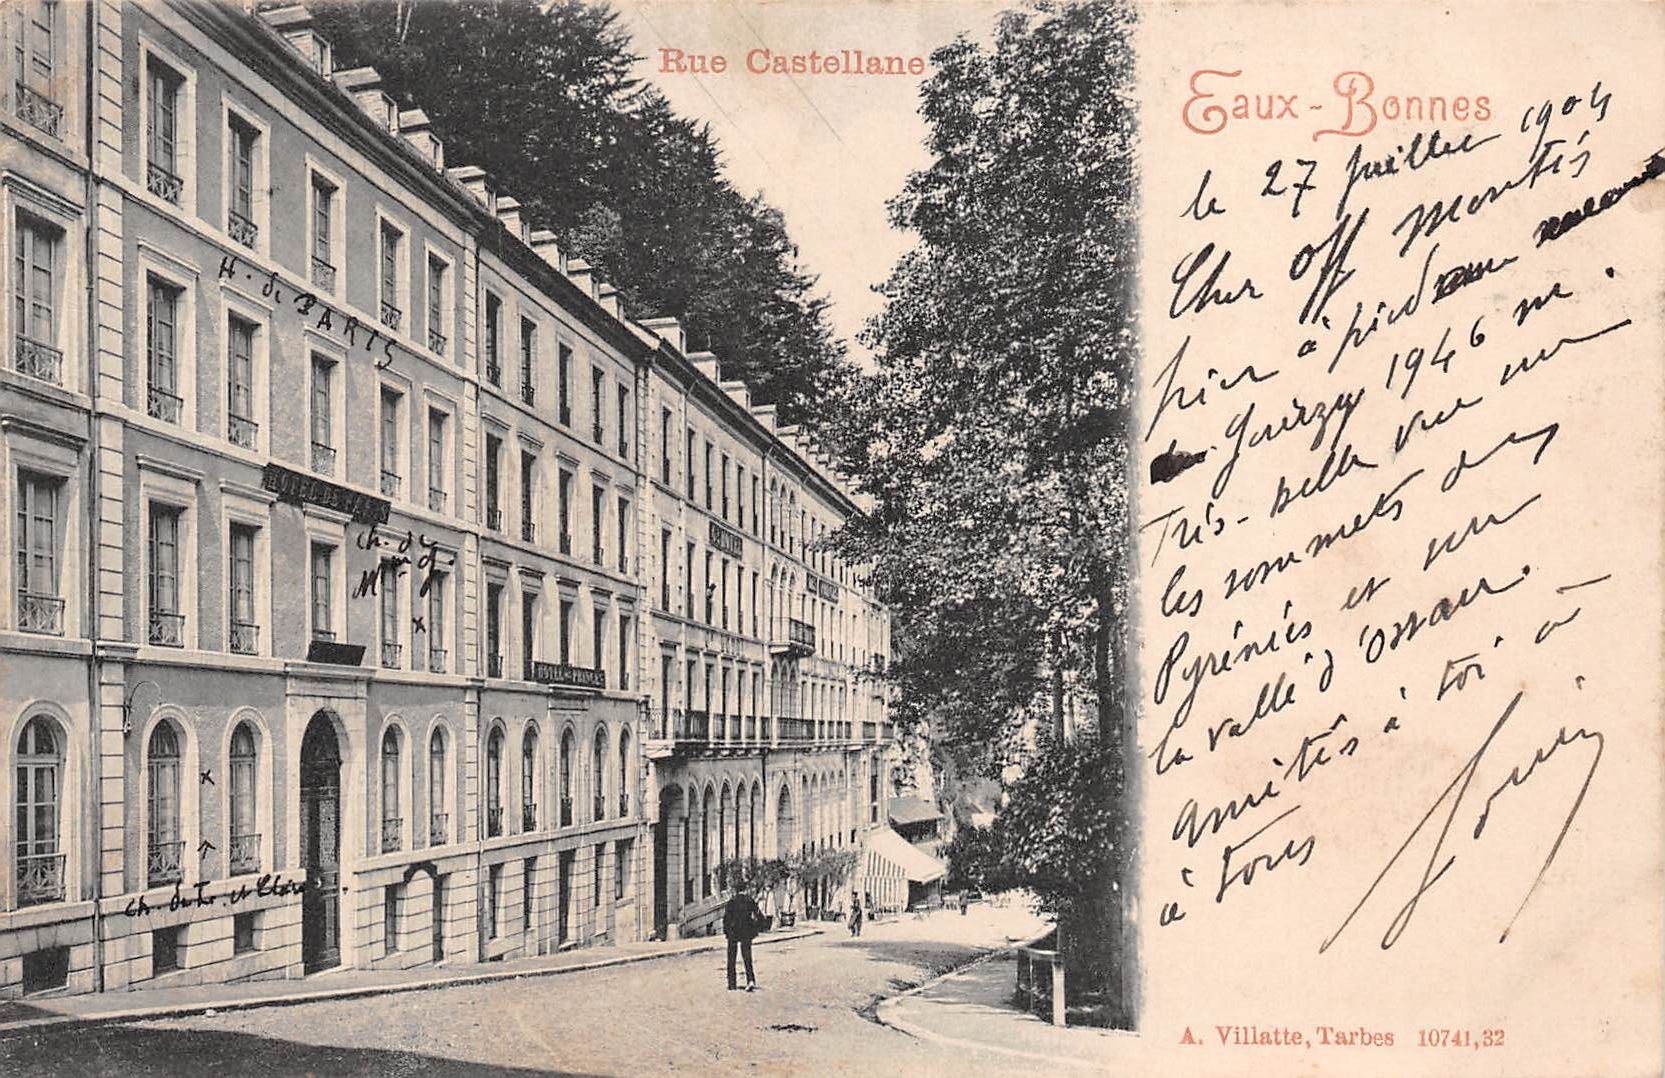 Rue Castellane
Eaux-Bonnes
le 27 Juillet 1904
Cher off montés
hier à pied
Gourzy 1946 m.
Très-belle vue sur
les sommets des
Pyrénées et sur
la vallé d'Ossau.
amitiés à toi &
à tous
Louis
H. de PARIS
HOTEL DE PARIS
ch. de
Mme G.
HOTEL DES PRINCES
ch. de et Claire
A. Villatte, Tarbes 10741,32